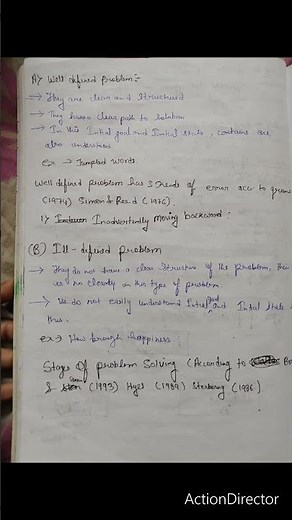 A) Well defined Problem:-
→ They are clear and Structured
→ They have clear path to Solution
→ In this Initial goal and Initial state, contains are
also understood
ex → Jumpled words.
Well defined problem has 3 kinds of error acc to greeno
(1974) Simon & Reed (1976).
1) Inadvertently moving backward:
(B) Ill-defined problem
→ They do not have a clear Structure of the problem, there
is no clearly in this type of problem
→ We do not easily understand Initial goal and Initial state
thus.
ex → How brough happiness
Stages Of problem Solving (According to
& (1993) Hyes (1989) Sternberg (1986)
ActionDirector